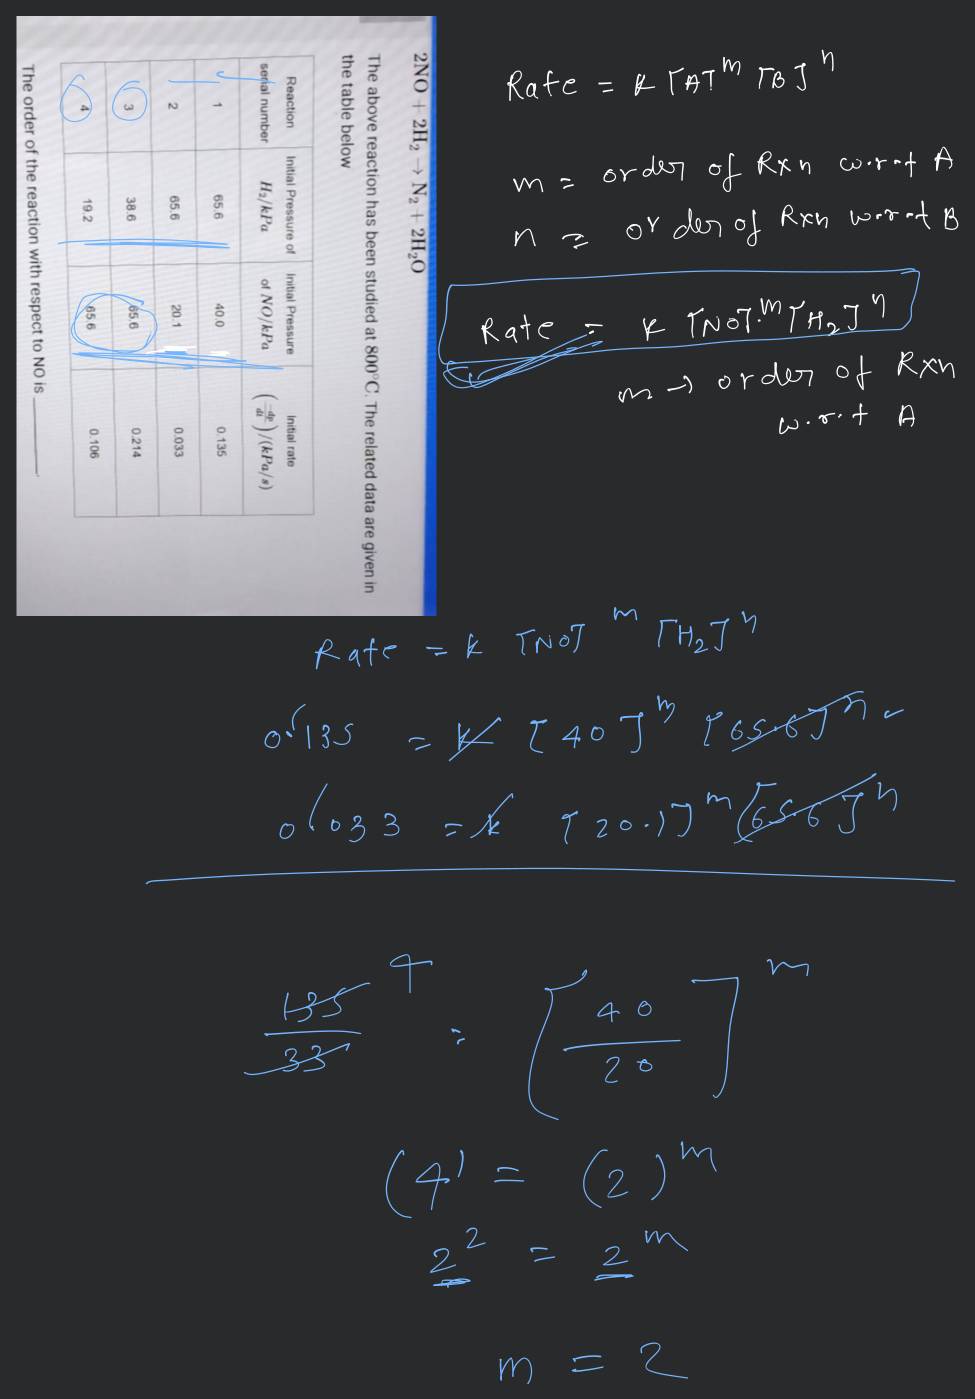 2NO + 2H₂ → N₂ + 2H₂O
The above reaction has been studied at 800°C. The related data are given in
the table below
Reaction serial number | Initial Pressure of H₂/kPa | Initial Pressure of NO/kPa | Initial rate (-dp/dt)/(kPa/s)
1 | 65.6 | 40.0 | 0.135
2 | 65.6 | 20.1 | 0.033
3 | 38.6 | 65.6 | 0.214
4 | 19.2 | 65.6 | 0.106
The order of the reaction with respect to NO is ________.
Rate = k [A]^m [B]^n
m = order of Rxn w.r.t A
n = order of Rxn w.r.t B
Rate = k [NO]^m [H₂]^n
m → order of Rxn
w.r.t A
Rate = k [NO]^m [H₂]^n
0.135 = k [40]^m [65.6]^n
0.033 = k [20.1]^m [65.6]^n
135/33 4 = [40/20]^m
(4)' = (2)^m
2^2 = 2^m
m = 2